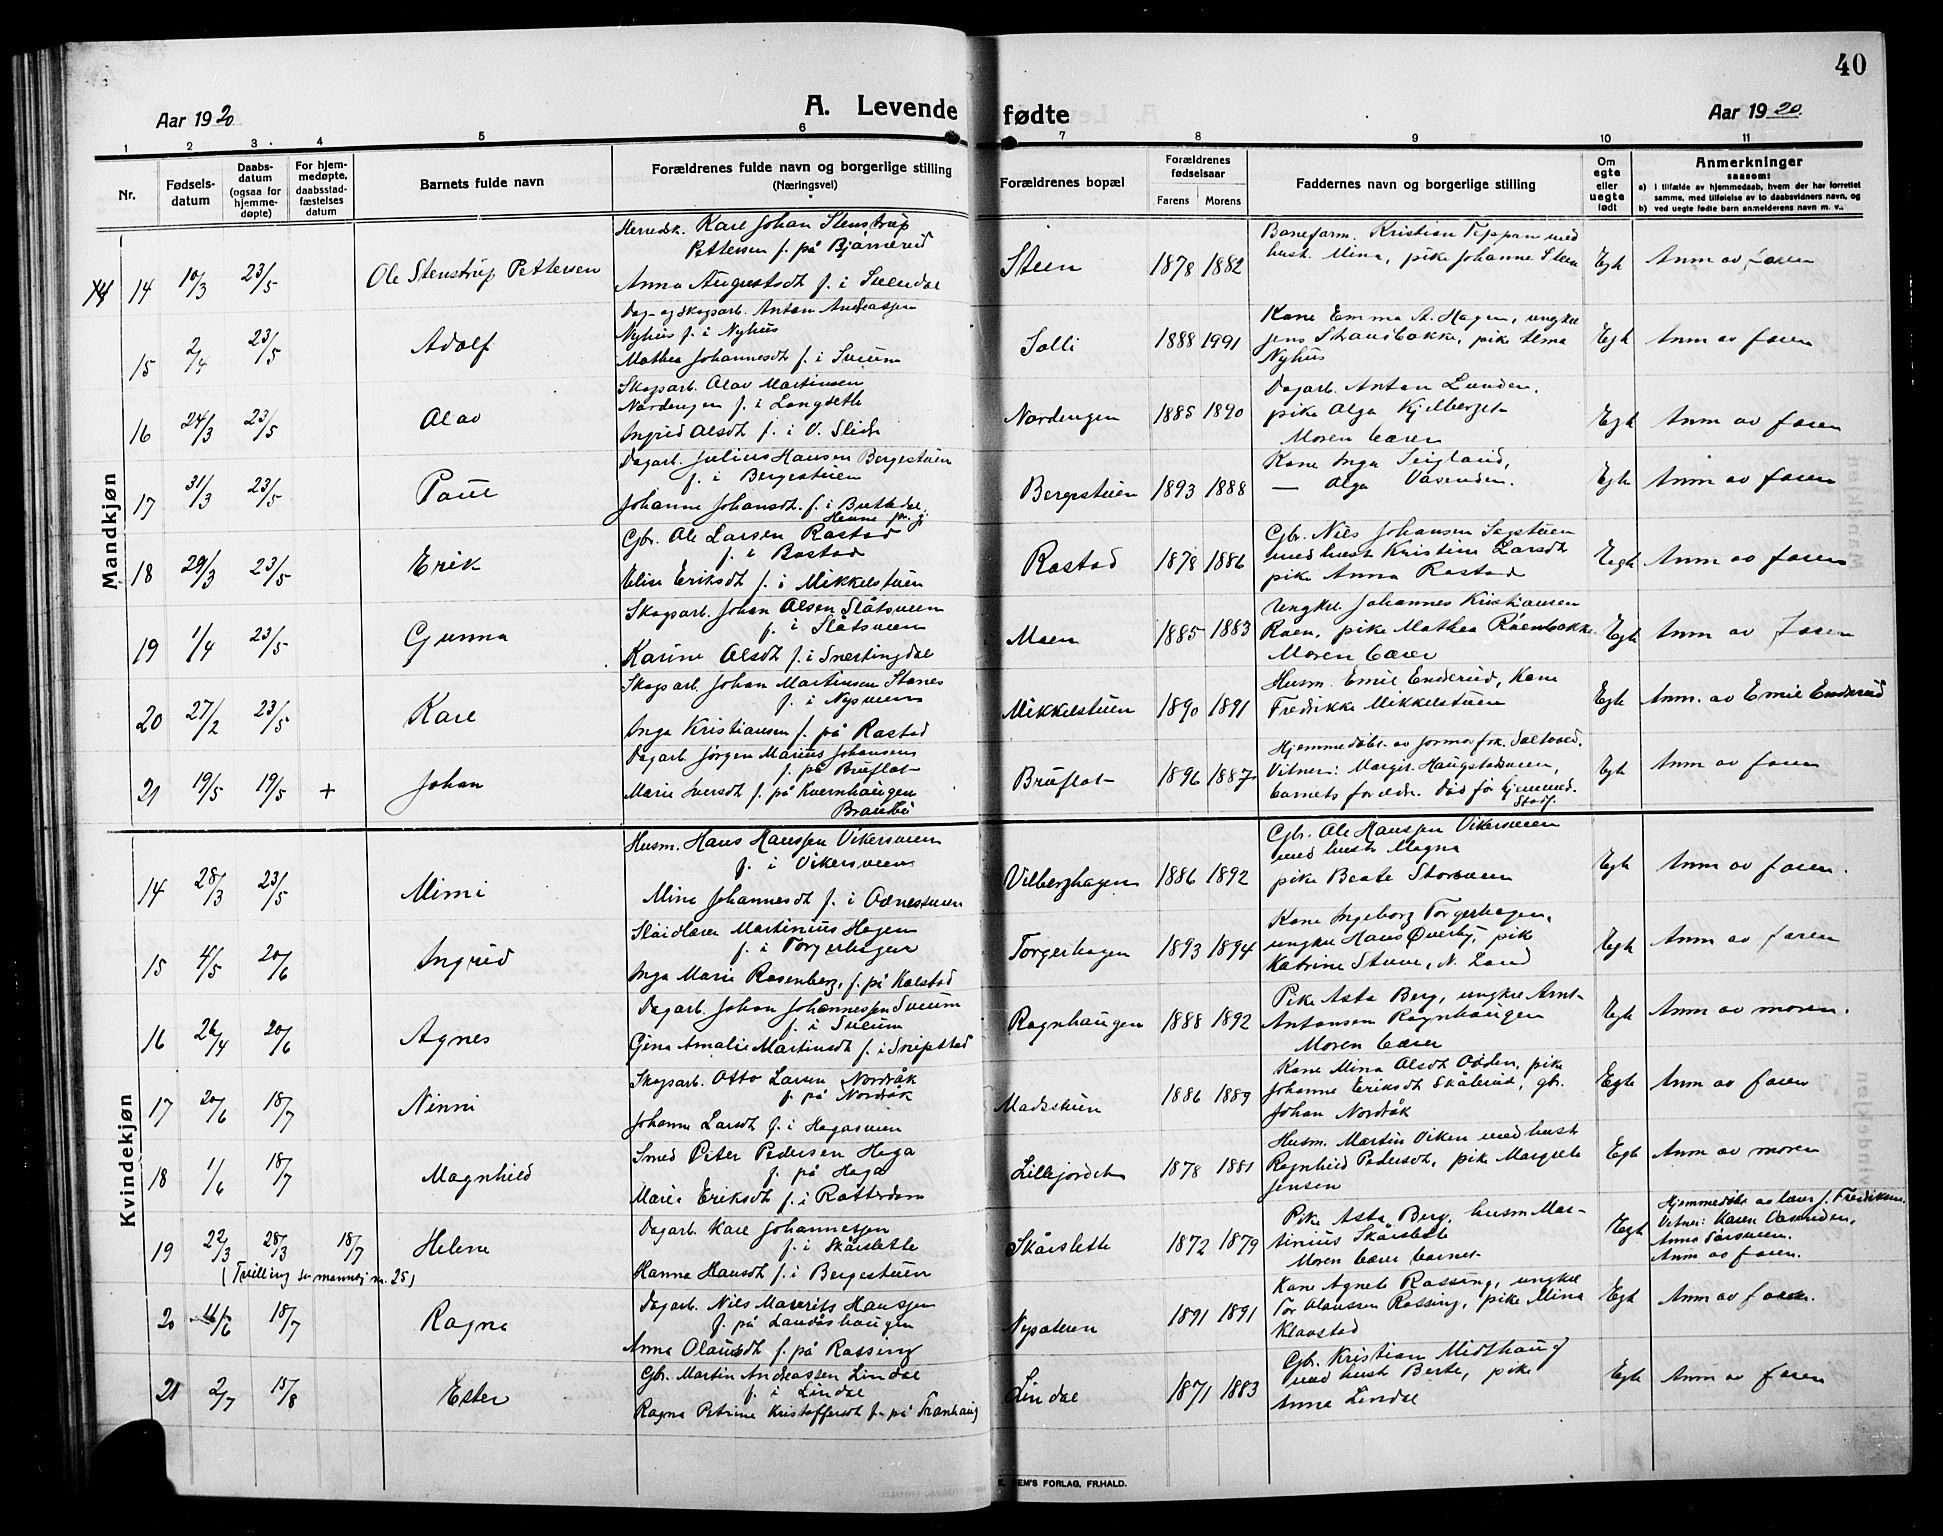 40
Aar 1920
A. Levende fødte
Aar 1920.
1 2 3 4 5 6 7 8 9 10 11
Nr.
Fødsels-
datum
Daabs-
datum
(ogsaa for
hjemme-
døpte)
For hjem-
medøpte,
daabsstad-
fæstelses
datum
Barnets fulde navn
Forældrenes fulde navn og borgerlige stilling
(Næringsvei)
Forældrenes bopæl
Forældrenes
fødselsaar
Farens Morens
Faddernes navn og borgerlige stilling
Om
egte
eller
uegte
født
Anmerkninger
saasom:
a) i tilfælde av hjemmedaab, hvem der har forrettet
samme, med tilføielse av to daabsvidners navn, og
b) ved uegte fødte barn anmelderens navn m. v..
Mandkjøn
14 14 10/3 23/5 Ole Stenstrup Pettersen
Herredsk. Kare Johan Stenstrup
Pettersen f. på Bjørnerud
Anna Augustsdt f. i Svendal
Steen 1878 1882
Baneform. Kristian Tippan med
hust. Mina, pike Johanne Steen
Egte Anm av faren
15 2/4 23/5 Adolf
Dag- og skogsarb. Anton Andreasen
Nyhus f. i Nyhus
Mathea Johannesdt f. i Sveum
Solli 1888 1991
Kone Emma A. Hagen, ungkar
Jens Strandbakke, pike Alma
Nyhus
Egte Anm av faren
16 24/3 23/5 Olav
Skogsarb. Olav Martinsen
Nordengen f. i Langseth
Ingrid Olsdt f. i V. Slidre
Nordengen 1885 1890
Dagarb. Anton Lunden.
pike Olga Kjelberget
Moren bærer
Egte Anm av faren
17 31/3 23/5 Paul
Dagarb. Julius Hansen Bergestuen
f. i Bergestuen
Johanne Johansdt. f. i
Bergestuen 1893 1888
Kone Inga Seigland,
— Olga Våsenden.
Egte Anm av faren
18 29/3 23/5 Erik
Gbr. Ole Larsen Rostad
f. i Rostad
Elise Eriksdt f. i Mikkelstuen
Rostad 1878 1886
Gbr. Niels Johansen Sagstuen
med hust Kristine Larsdt
pike Anna Rostad
Egte Anm av faren
19 1/4 23/5 Gunna
Skogsarb. Johan Olsen Slåtsveen
f. i Slåtsveen
Karine Olsdt f. i Snertingdal
Moen 1885 1883
Ungkar. Johannes Kristiansen
Roen, pike Mathea Roenbakke
Moren bærer
Egte Anm av faren
20 27/2 23/5 Kare
Skogsarb. Johan Martinsen Stenes
f. i Nysveen
Inga Kristiansen f. på Rostad
Mikkelstuen 1890 1891
Husm. Emil Enderud, Kone
Fredrikke Mikkelstuen
Egte Anm. av Emil Enderud
21 19/5 19/5 + Johan
Dagarb. Jørgen Marius Johansens
f. på Bruflat
Marie Iversdt f. på Kvernhaugen
Brandbu
Bruflat 1896 1887
Hjemmedøbt av jormor frk. Saltved.
Vitner: Margit Haugstadsveen,
barnets foreldr. Død før hjemmed.
Stadf.
Egte Anm av faren
Kvindekjøn
14 28/3 23/5 Mimi
Husm. Hans Hanssen Vikersveen
f. i Vikersveen
Mina Johannesdt f. i Odnesveen
Vilberghagen 1886 1892
Gbr. Ole Hanssen Vikersveen
med hust Magna
pike Beate Storsveen
Egte Anm av faren.
15 4/5 20/6 Ingrid
Martinius Hagen
f. i Torgerhagen
Inga Marie Rosenberg, f. på Kolstad
Torgerhagen 1893 1894
Kone Ingeborg Torgerhagen,
ungkar Hans Øverby, pike
Katrine Stuve, N. Land
Egte Anm av faren
16 26/4 20/6 Agnes
Dagarb. Johan Johannessen Sveum
f. i Sveum
Gina Amalie Martinsdt f. i Snipstad
Rognhaugen 1888 1892
Pike Asta Berg, ungkar Arnt
Antonsen Rognhaugen
Moren bærer
Egte Anm av moren.
17 20/6 18/7 Ninni
Skogsarb. Otto Larsen Nordråk
f. på Nordråk
Johanne Larsdt f. i Hagasveen
Madsstuen 1886 1889
Kone Mina Olsdt Odden, pike
Johanne Eriksdt Skålerud, gbr.
Johan Nordråk
Egte Anm av faren
18 1/6 18/7 Magnhild
Smed Peter Pedersen Haga
f. på Haga
Marie Eriksdt f. i Rotterdam
Lillejordet 1878 1881
Husm. Martin Viken med hust
Ragnhild Pedersdt, pike Margrete
Jensen
Egte Anm av moren
19 22/3 28/3 18/7 Helene
(Tvilling se mannkj nr. 25)
Dagarb. Kare Johannessen
f. i Skårslette
Hanna Hansdt f. i Bergestuen
Skårslette 1872 1879
Pike Asta Berg, husm Mar-
tinius Skårslette
Moren bærer barnet
Egte
Hjemmedøbt av lærer J. Fredriksen.
Vitner: Karen Vasenden,
Anna Torsveen.
Anm av faren.
20 11/6 18/7 Ragna
Dagarb. Nils Mauritz Hanssen
f. på Landåshaugen
Anna Olausdt f. på Rossing
Nyseteren 1891 1891
Kone Agnete Rossing, ungkar
Tor Olaussen Rossing, pike Mina
Klaastad
Egte Anm av faren.
21 2/7 15/8 Ester
Gbr. Martin Andreassen Lindal
f. i Lindal
Ragna Petrine Kristoffersdt f. på Tranhaug
Lindal 1871 1883
Gbr. Kristian Midthaug
med hust Berte, pike
Anna Lindal
Egte Anm av faren
E. SEM'S FORLAG, FR.HALD.